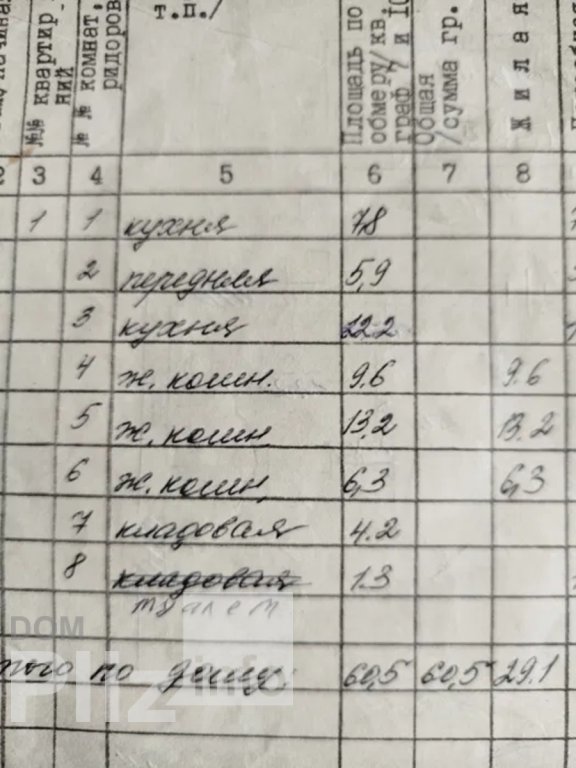 т.п./
№№ квартир
ний
№ № комнат,
ридоров
Площадь по
обмеру/кв
граф / и
Общая
/сумма гр.
Жилая
3 4 5 6 7 8
1 1 кухня 7,8
2 передняя 5,9
3 кухня 12.2
4 ж. комн. 9.6 9.6
5 ж. комн 13,2 13.2
6 ж. комн. 6,3 6,3
7 кладовая 4.2
8 кладовая 1.3
туалет
по дому: 60,5 60,5 29.1
DOM
Pliz
info